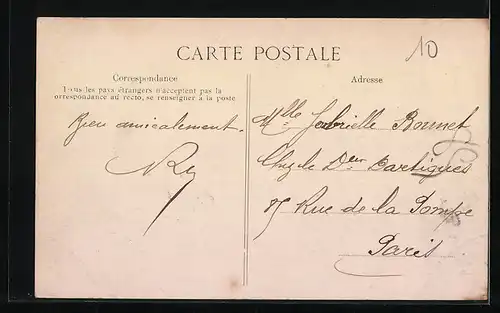 CARTE POSTALE
10
Correspondance
Tous les pays étrangers n'acceptent pas la
correspondance au recto, se renseigner à la poste
Bien amicalement.
Adresse
Mlle Gabrielle Bonnet
Chez le Dr
Rue de la Pompe
Paris